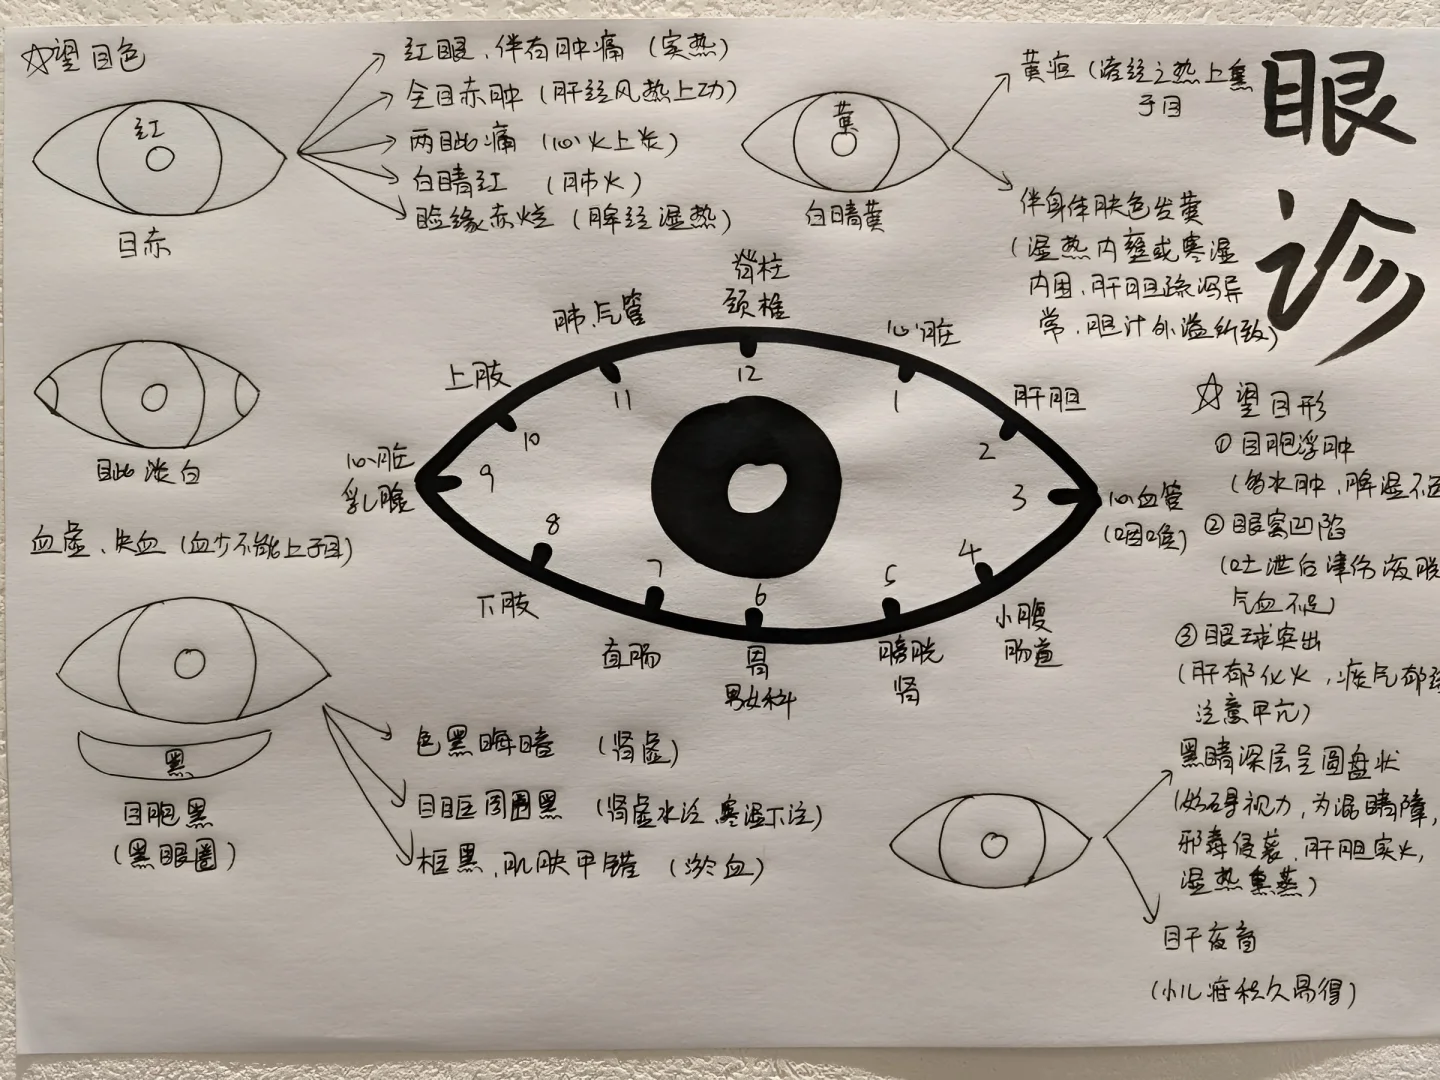 眼诊
☆望目色
红
目赤
红眼、伴有肿痛（实热）
全目赤肿（肝经风热上功）
两眦痛（心火上炎）
白睛红（肺火）
睑缘赤烂（脾经湿热）
黄
白睛黄
黄疸（
之热上熏
于目
伴身体肤色发黄
（湿热内蕴或寒湿
内困、肝胆疏泻异
常、胆汁外溢所致）
目眦淡白
血虚、失血（血少不能上于目）
脊柱
颈椎
12
心脏
1
肝胆
2
心血管
（咽喉）
3
小腹
肠道
4
膀胱
肾
5
胃
男女科
6
直肠
7
下肢
8
心脏
乳腺
9
上肢
10
肺、气管
11
黑
目胞黑
（黑眼圈）
色黑晦暗（肾虚）
目眶周围黑（肾虚水泛、寒湿下注）
框黑、肌肤甲错（瘀血）
☆望目形
①目胞浮肿
（多水肿，脾湿不运
②眼窝凹陷
（吐泄后津伤液脱
气血不足）
③眼球突出
（肝郁化火，痰气郁结
注意甲亢）
黑睛深层呈圆盘状
（妨碍视力，为混睛障，
邪毒侵袭、肝胆实火，
湿热熏蒸）
目干夜盲
（小儿疳积久易得）